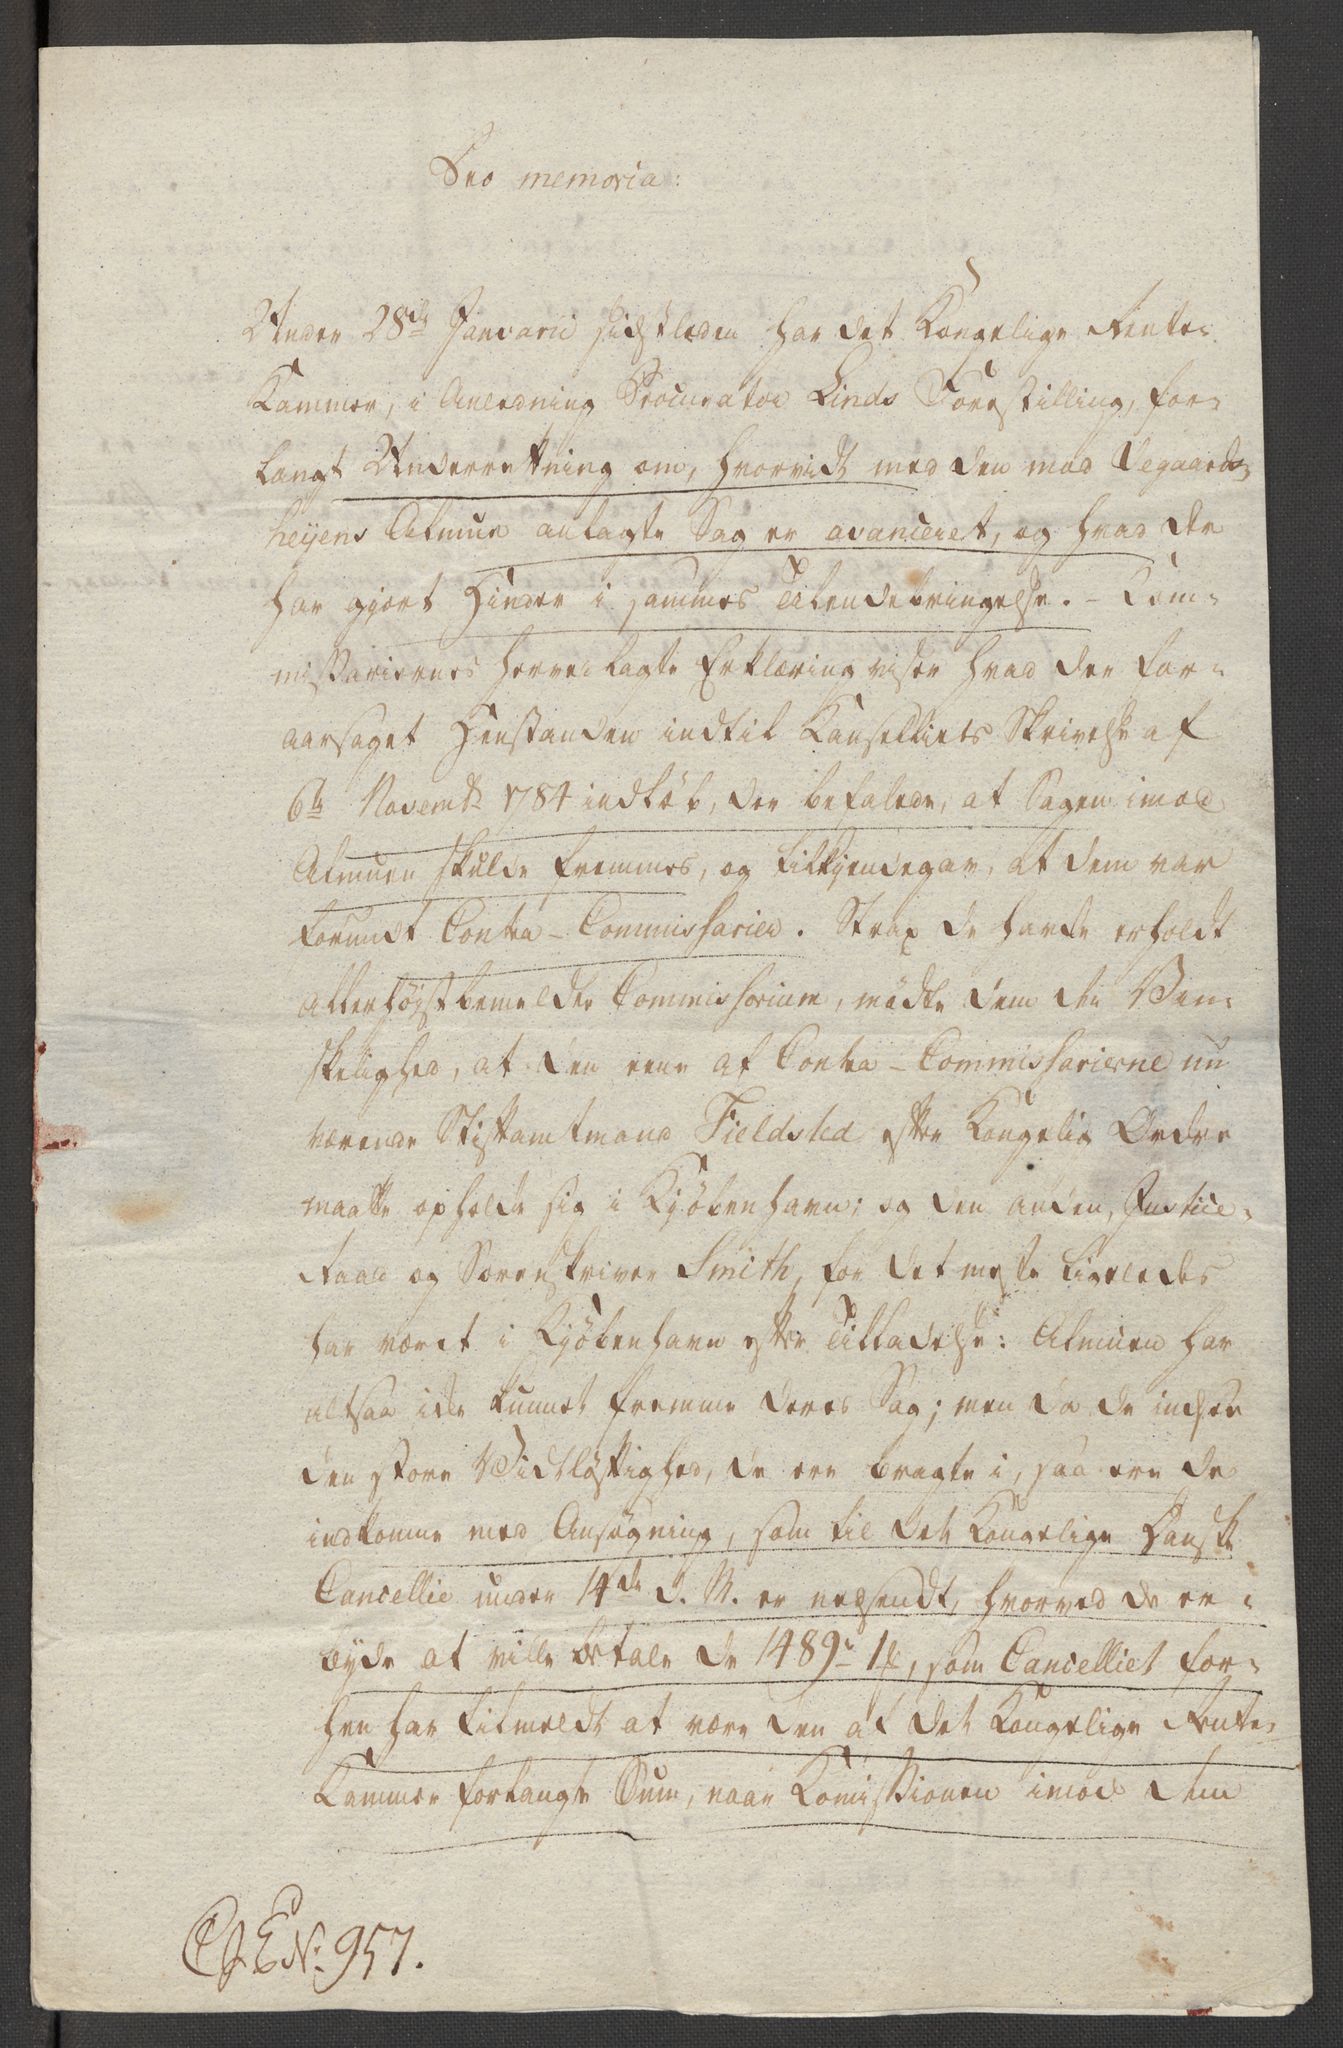 Pro memoria:
Under 28de Januarii sidstleden har det Kongelige Rente-
Kammer, i Anledning Procurator Linds Forestilling, for-
langt Underretning om, hvorvidt med den mod Degaards-
heyens Almue anlagte Sag er avanceret, og hvad der
har gjort Hinder i sammes Tilendebringelse. - Com-
missariernes herved lagte Erklæring viser hvad der for-
aarsaget Henstanden indtil Kanselliets Skrivelse af
6te Novembr 1784 indløb, der befalede, at Sagen imod
Almuen skulde fremmes, og tilkjendegav, at dem var
forundt Contra-Commissarier. Strax de havde erholdt
allerhøystbemeldte Commissorium, mødte dem den Van-
skelighed, at den eene af Contra-Commissarierne nu
værende Stiftamtmand Fieldsted efter Kongelig Ordre
maatte opholde sig i Kjøbenhavn; og den anden, Justice-
Raad og Sorenskriver Smith, for det meste ligeledes
har været i Kjøbenhavn efter Tilladelse: Almuen har
altsaa ikke kunnet fremme deres Sag; men da de indsee
den store Vidtløftighed, de ere bragte i, saa ere de
indkomne med Ansøgning, som til det Kongelige Danske
Cancellie under 14de d. M. er nedsendt, hvorved de er-
byde at ville betale de 1489r 1s, som Cancelliet for-
hen har tilmeldt at være den af det Kongelige Rente-
Kammer forlangte Sum, naar Komissionen imod dem
No: 957.